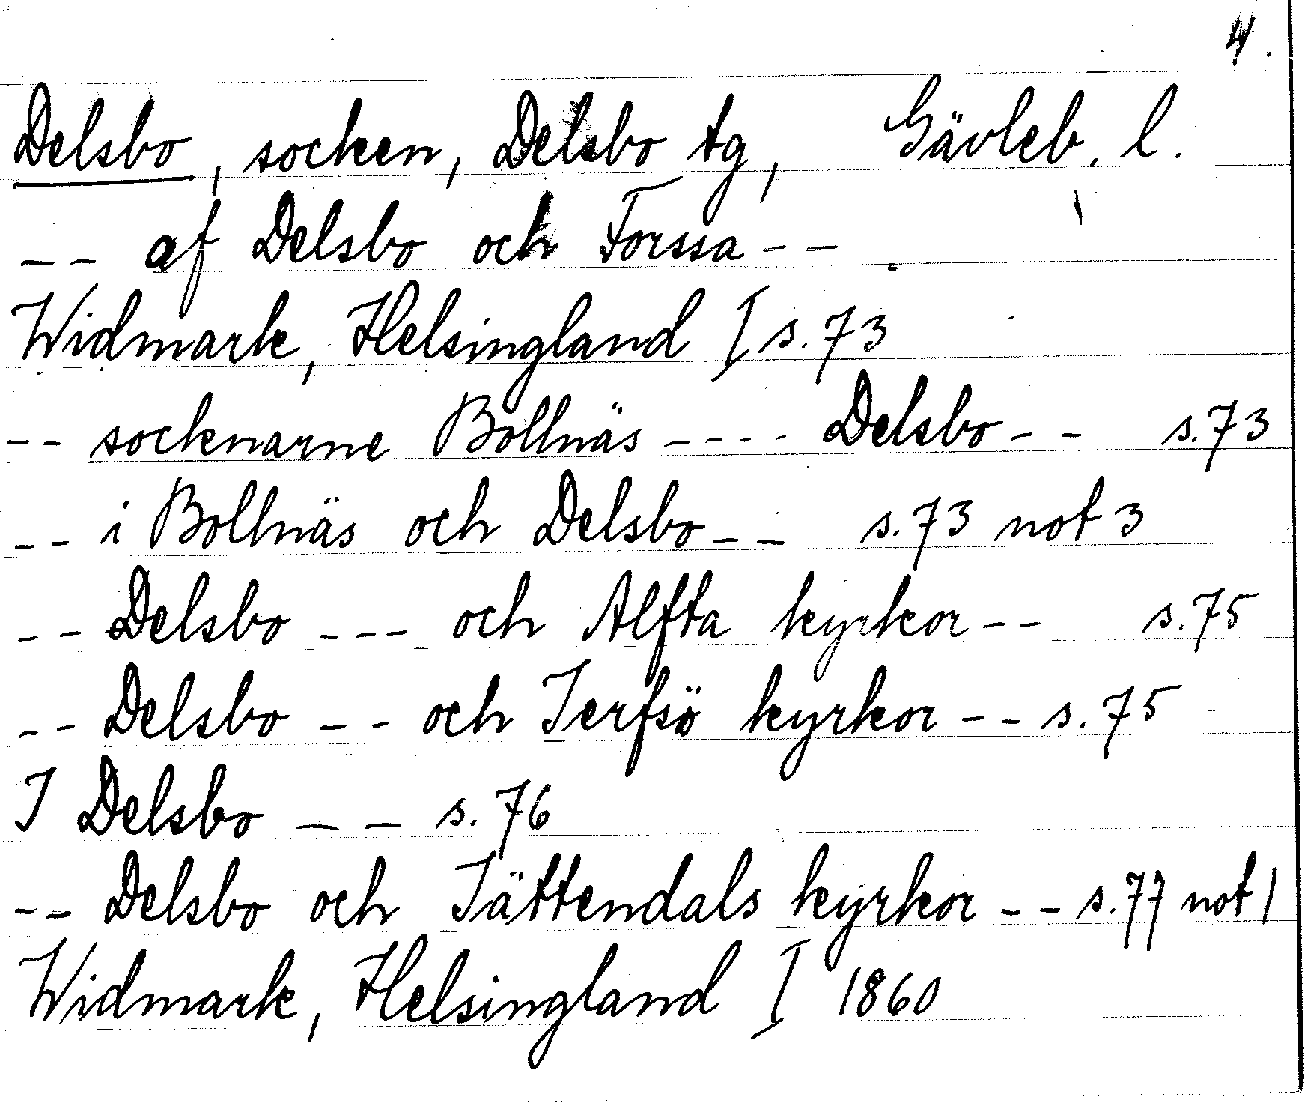 4.
Delsbo, socken, Delsbo tg, Gävleb. l.
-- af Delsbo och Forssa --
Widmark, Helsingland I s. 73
-- socknarne Bollnäs ---- Delsbo -- s. 73
-- i Bollnäs och Delsbo -- s. 73 not 3
-- Delsbo --- och Alfta kyrkor -- s. 75
-- Delsbo -- och Jerfsö kyrkor -- s. 75
I Delsbo -- s. 76
-- Delsbo och Jättendals kyrkor -- s. 77 not 1
Widmark, Helsingland I 1860